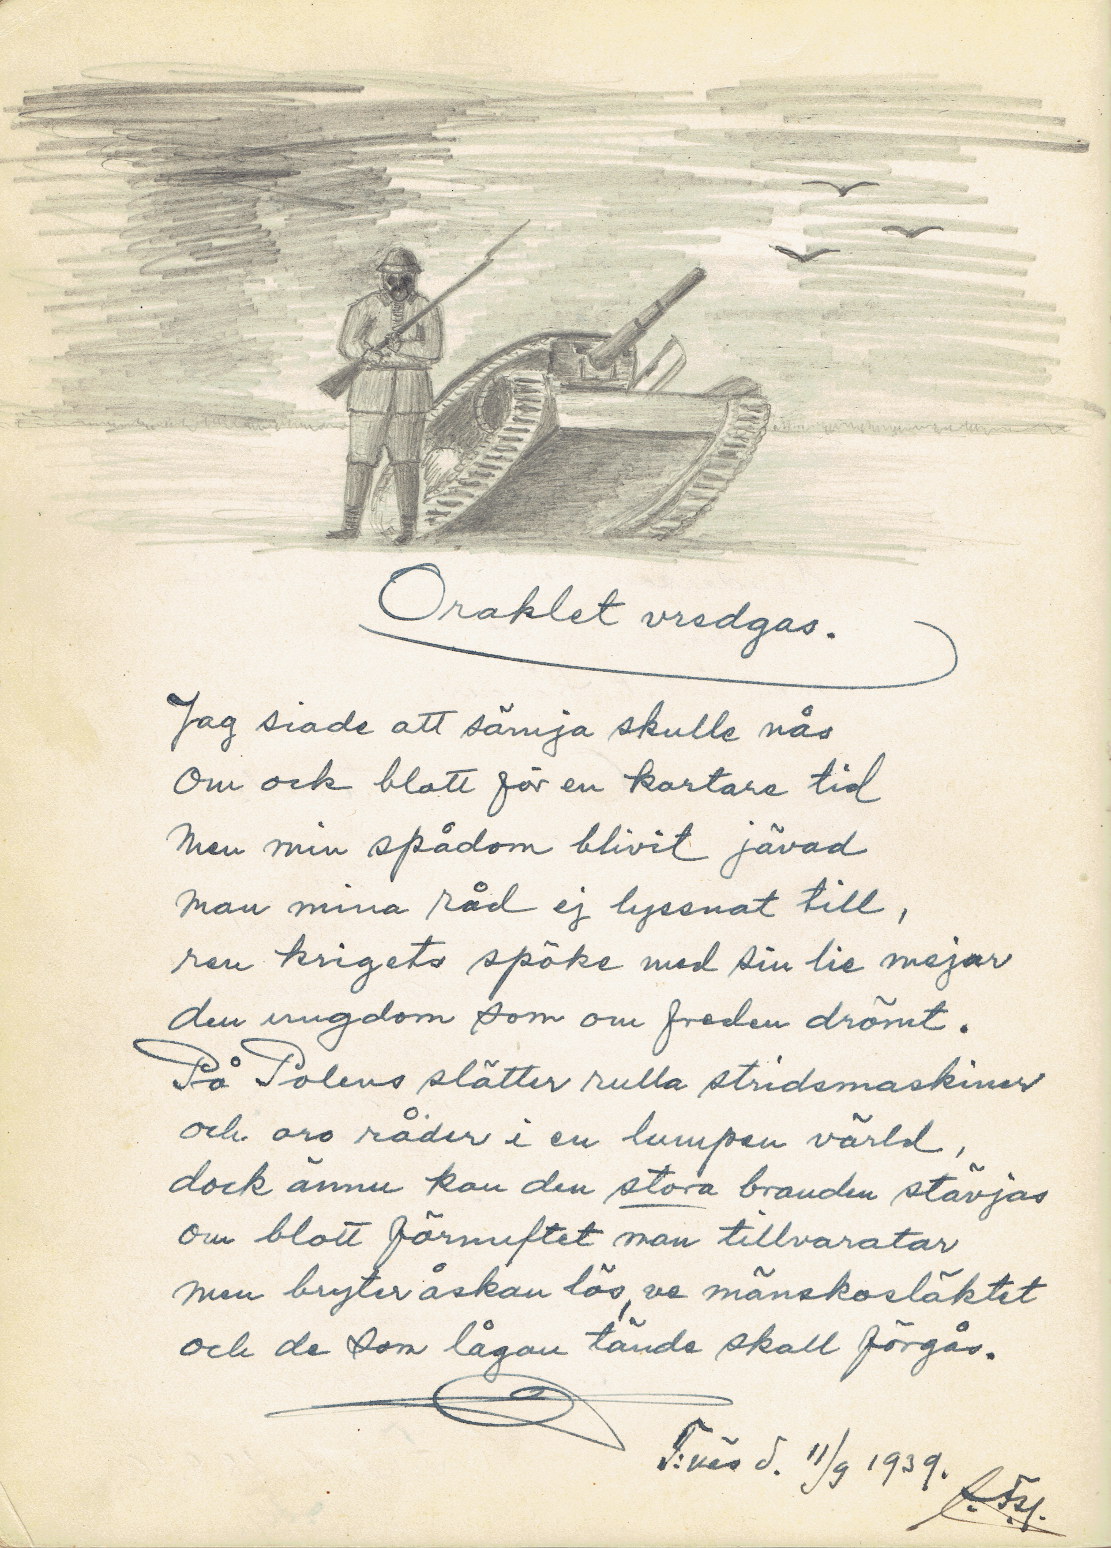 Oraklet vredgas.
Jag siade att sämja skulle nås
Om ock blott för en kortare tid
Men min spådom blivit jävad
man mina råd ej lyssnat till,
ren krigets spöke med sin lie mejar
den ungdom som om freden drömt.
På Polens slätter rulla stridsmaskiner
och oro råder i en lumpen värld,
dock ännu kan den stora branden stävjas
om blott förnuftet man tillvaratar
men bryter åskan lös, ve mänskosläktet
och de som lågan tände skall förgås.
d. 11/9 1939.